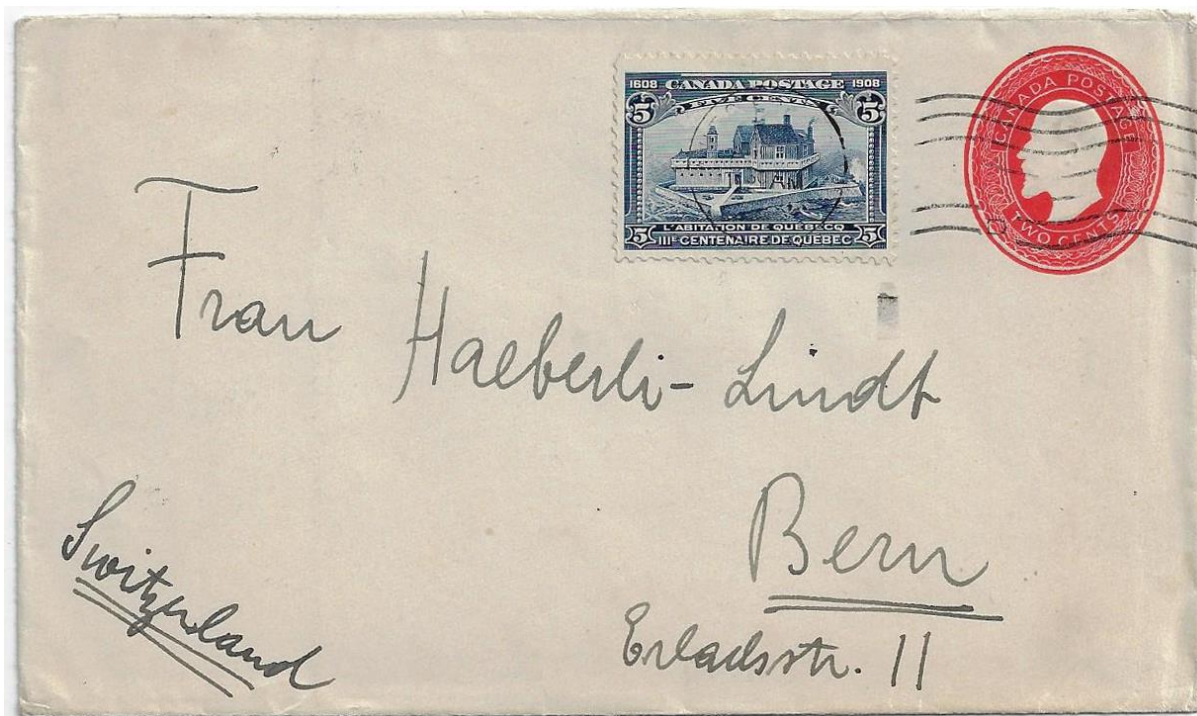 1608 CANADA POSTAGE 1908
FIVE CENTS
5 5
L'ABITATION DE QUEBECQ
5 IIIE CENTENAIRE DE QUEBEC 5
CANADA POSTAGE
TWO CENTS
Frau Haeberli-Lindt
Bern
Erlachstr. 11
Switzerland